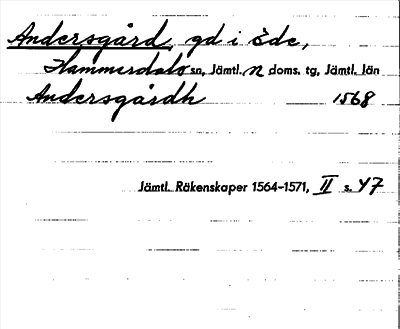 Andersgård, gd i Ede,
Hammerdals sn, Jämtl. n doms. tg, Jämtl. län
Andersgårdh 1568
Jämtl. Räkenskaper 1564-1571, II s. 47